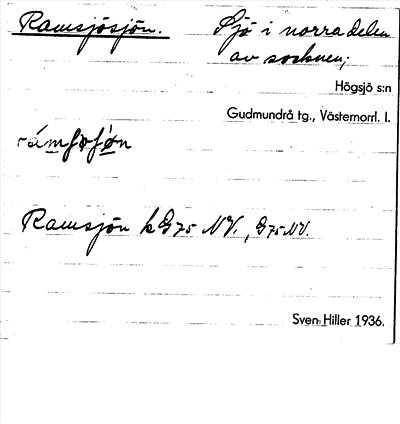 Ramsjösjön. Sjö i norra delen
av socknen;
Högsjö s:n
Gudmundrå tg., Västernorrl. l.
Ramsjön k G75 NV., G75 NV.
Sven Hiller 1936.